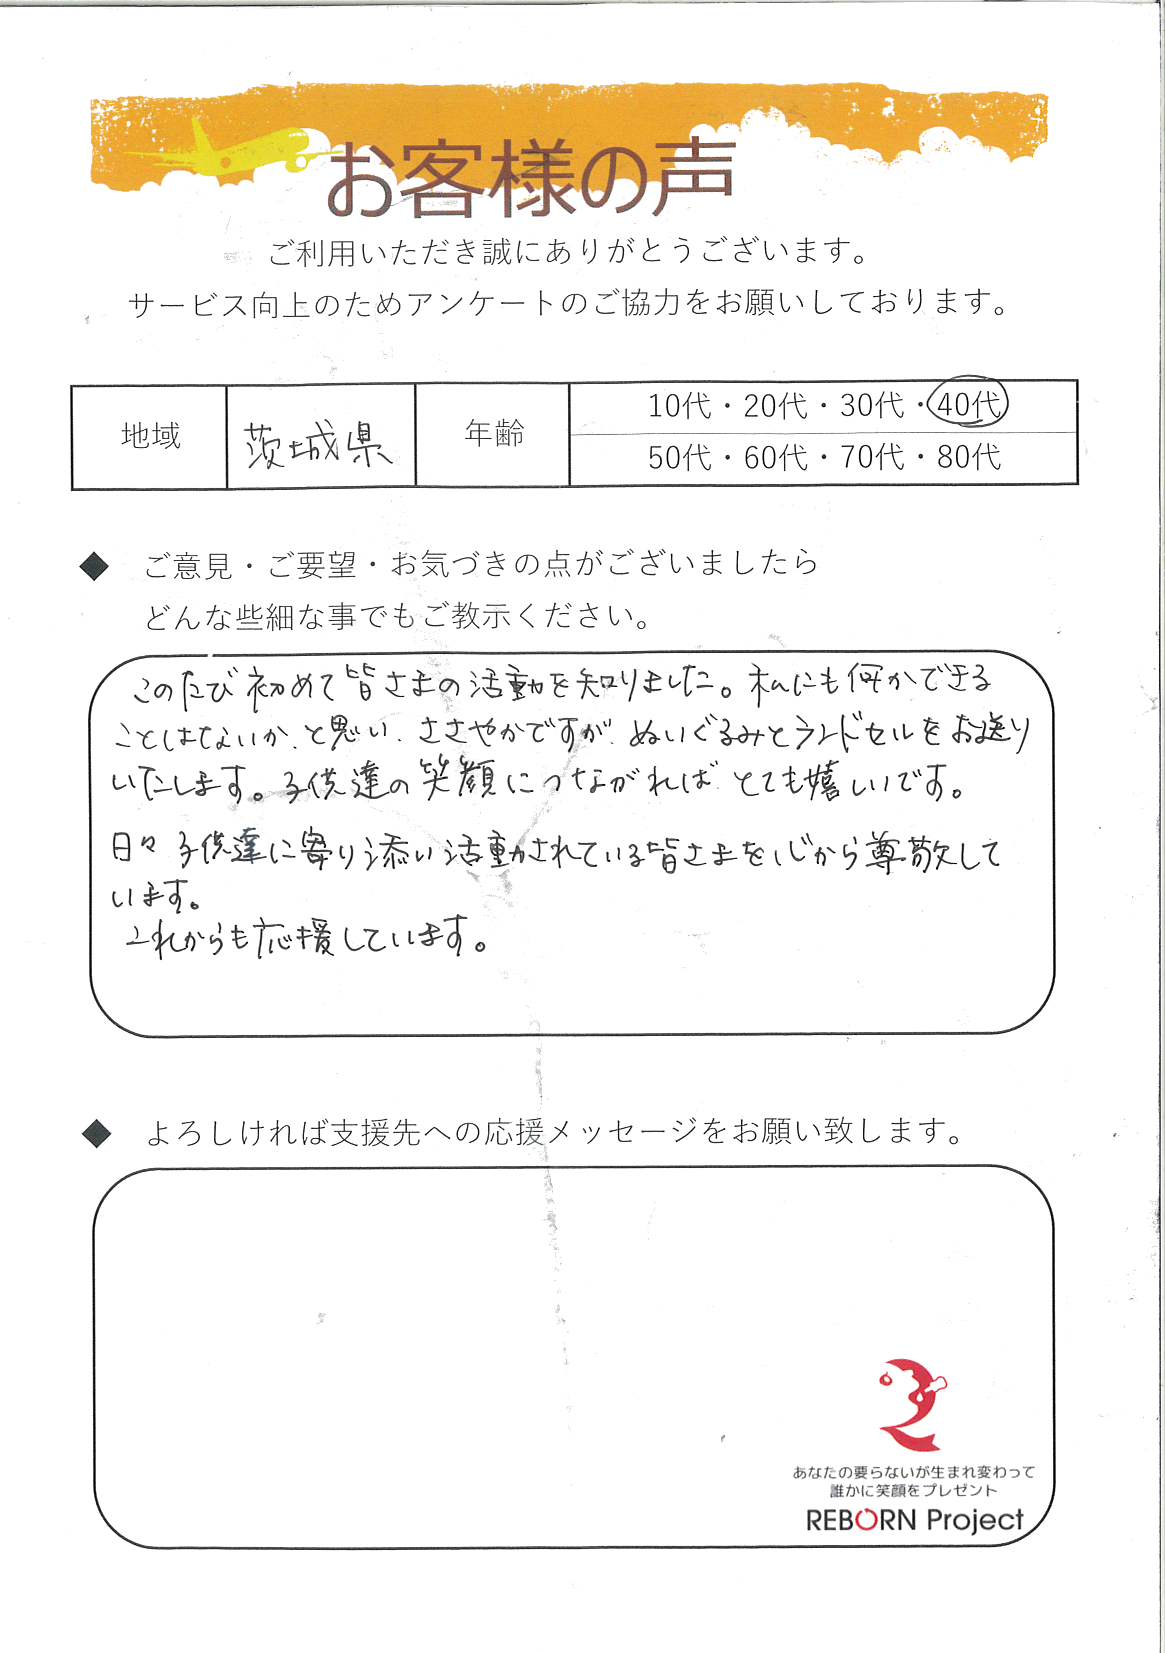 お客様の声
ご利用いただき誠にありがとうございます。
サービス向上のためアンケートのご協力をお願いしております。
地域 茨城県 年齢 10代・20代・30代・40代
50代・60代・70代・80代
◆ ご意見・ご要望・お気づきの点がございましたら
どんな些細な事でもご教示ください。
このたび初めて皆さまの活動を知りました。私にも何かできる
ことはないか、と思い、ささやかですが、ぬいぐるみとランドセルをお送り
いたします。子供達の笑顔につながれば とても嬉しいです。
日々 子供達に寄り添い活動されている皆さまを心から尊敬して
います。
これからも応援しています。
◆ よろしければ支援先への応援メッセージをお願い致します。
あなたの要らないが生まれ変わって
誰かに笑顔をプレゼント
REBORN Project